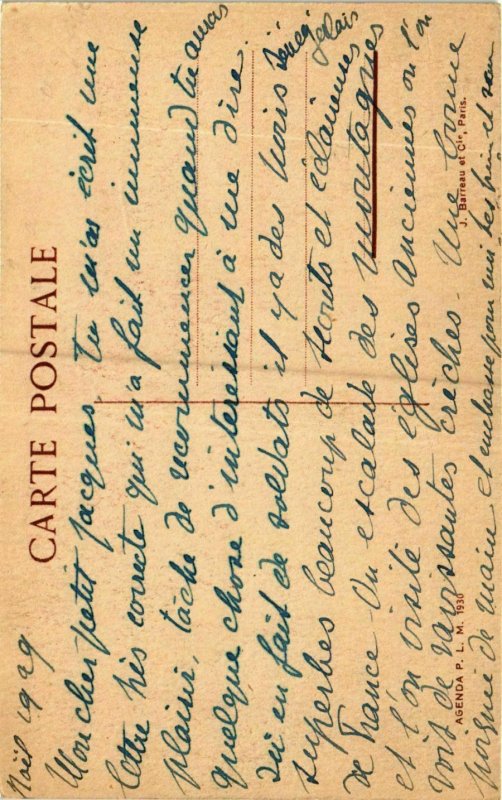 CARTE POSTALE
Noël 1929
Mon cher petit Jacques, tu m'as écrit une
lettre très correcte qui m'a fait un immense
plaisir, tâche de recommencer quand tu auras
quelque chose d'intéressant à me dire.
Ici en fait de soldats il y a des noirs
superbes beaucoup de scouts et éclaireuses
de France On escalade des montagnes
et l'on visite des églises anciennes où l'on
voit de ravissantes crèches - Une bonne
poignée de main et embrasse pour moi
AGENDA P. L. M. 1930
J. Barreau et Cie, Paris.